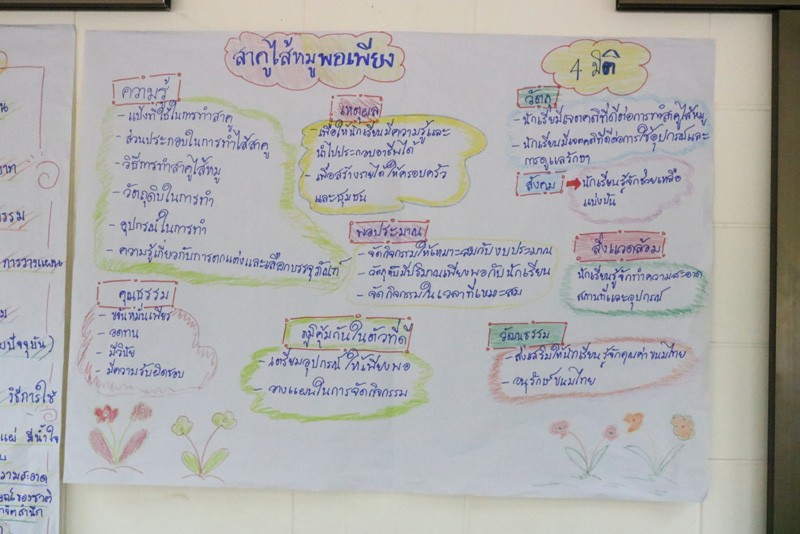 สาคูไส้หมูพอเพียง
4 มิติ
ความรู้
- แป้งที่ใช้ในการทำสาคู
- ส่วนประกอบในการทำไส้สาคู
- วิธีการทำสาคูไส้หมู
- วัตถุดิบในการทำ
- อุปกรณ์ในการทำ
- ความรู้เกี่ยวกับการตกแต่งและเลือกบรรจุภัณฑ์
เหตุผล
- เพื่อให้นักเรียนมีความรู้และ
นำไปประกอบอาชีพได้
- เพื่อสร้างรายได้ให้ครอบครัว
และชุมชน
พอประมาณ
- จัดกิจกรรมให้เหมาะสมกับงบประมาณ
- วัตถุดิบมีปริมาณเพียงพอกับนักเรียน
- จัดกิจกรรมในเวลาที่เหมาะสม
คุณธรรม
- ขยันหมั่นเพียร
- อดทน
- มีวินัย
- มีความรับผิดชอบ
ภูมิคุ้มกันในตัวที่ดี
- เตรียมอุปกรณ์ให้เพียงพอ
- วางแผนในการจัดกิจกรรม
วัตถุ
- นักเรียนมีเจตคติที่ดีต่อการทำสาคูไส้หมู
- นักเรียนมีเจตคติที่ดีต่อการใช้อุปกรณ์และ
การดูแลรักษา
สังคม
- นักเรียนรู้จักช่วยเหลือ
แบ่งปัน
สิ่งแวดล้อม
นักเรียนรู้จักทำความสะอาด
สถานที่และอุปกรณ์
วัฒนธรรม
- ส่งเสริมให้นักเรียนรู้จักคุณค่าขนมไทย
- อนุรักษ์ขนมไทย
การวางแผน
ปัจจุบัน)
วิธีการใช้
มีน้ำใจ